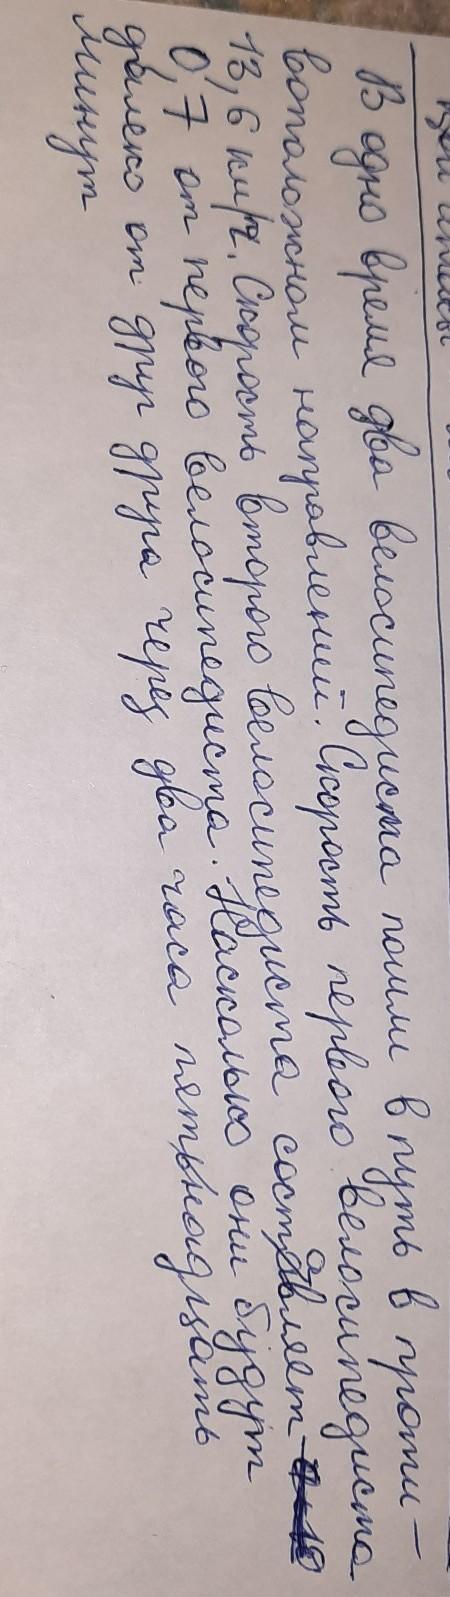 В одно время два велосипедиста пошли в путь в проти-
воположном направлений. Скорость первого велосипедиста
13,6 км/ч. Скорость второго велосипедиста составляет
0,7 от первого велосипедиста. Насколько они будут
далеко от друг друга через два часа пятьнадцать
минут